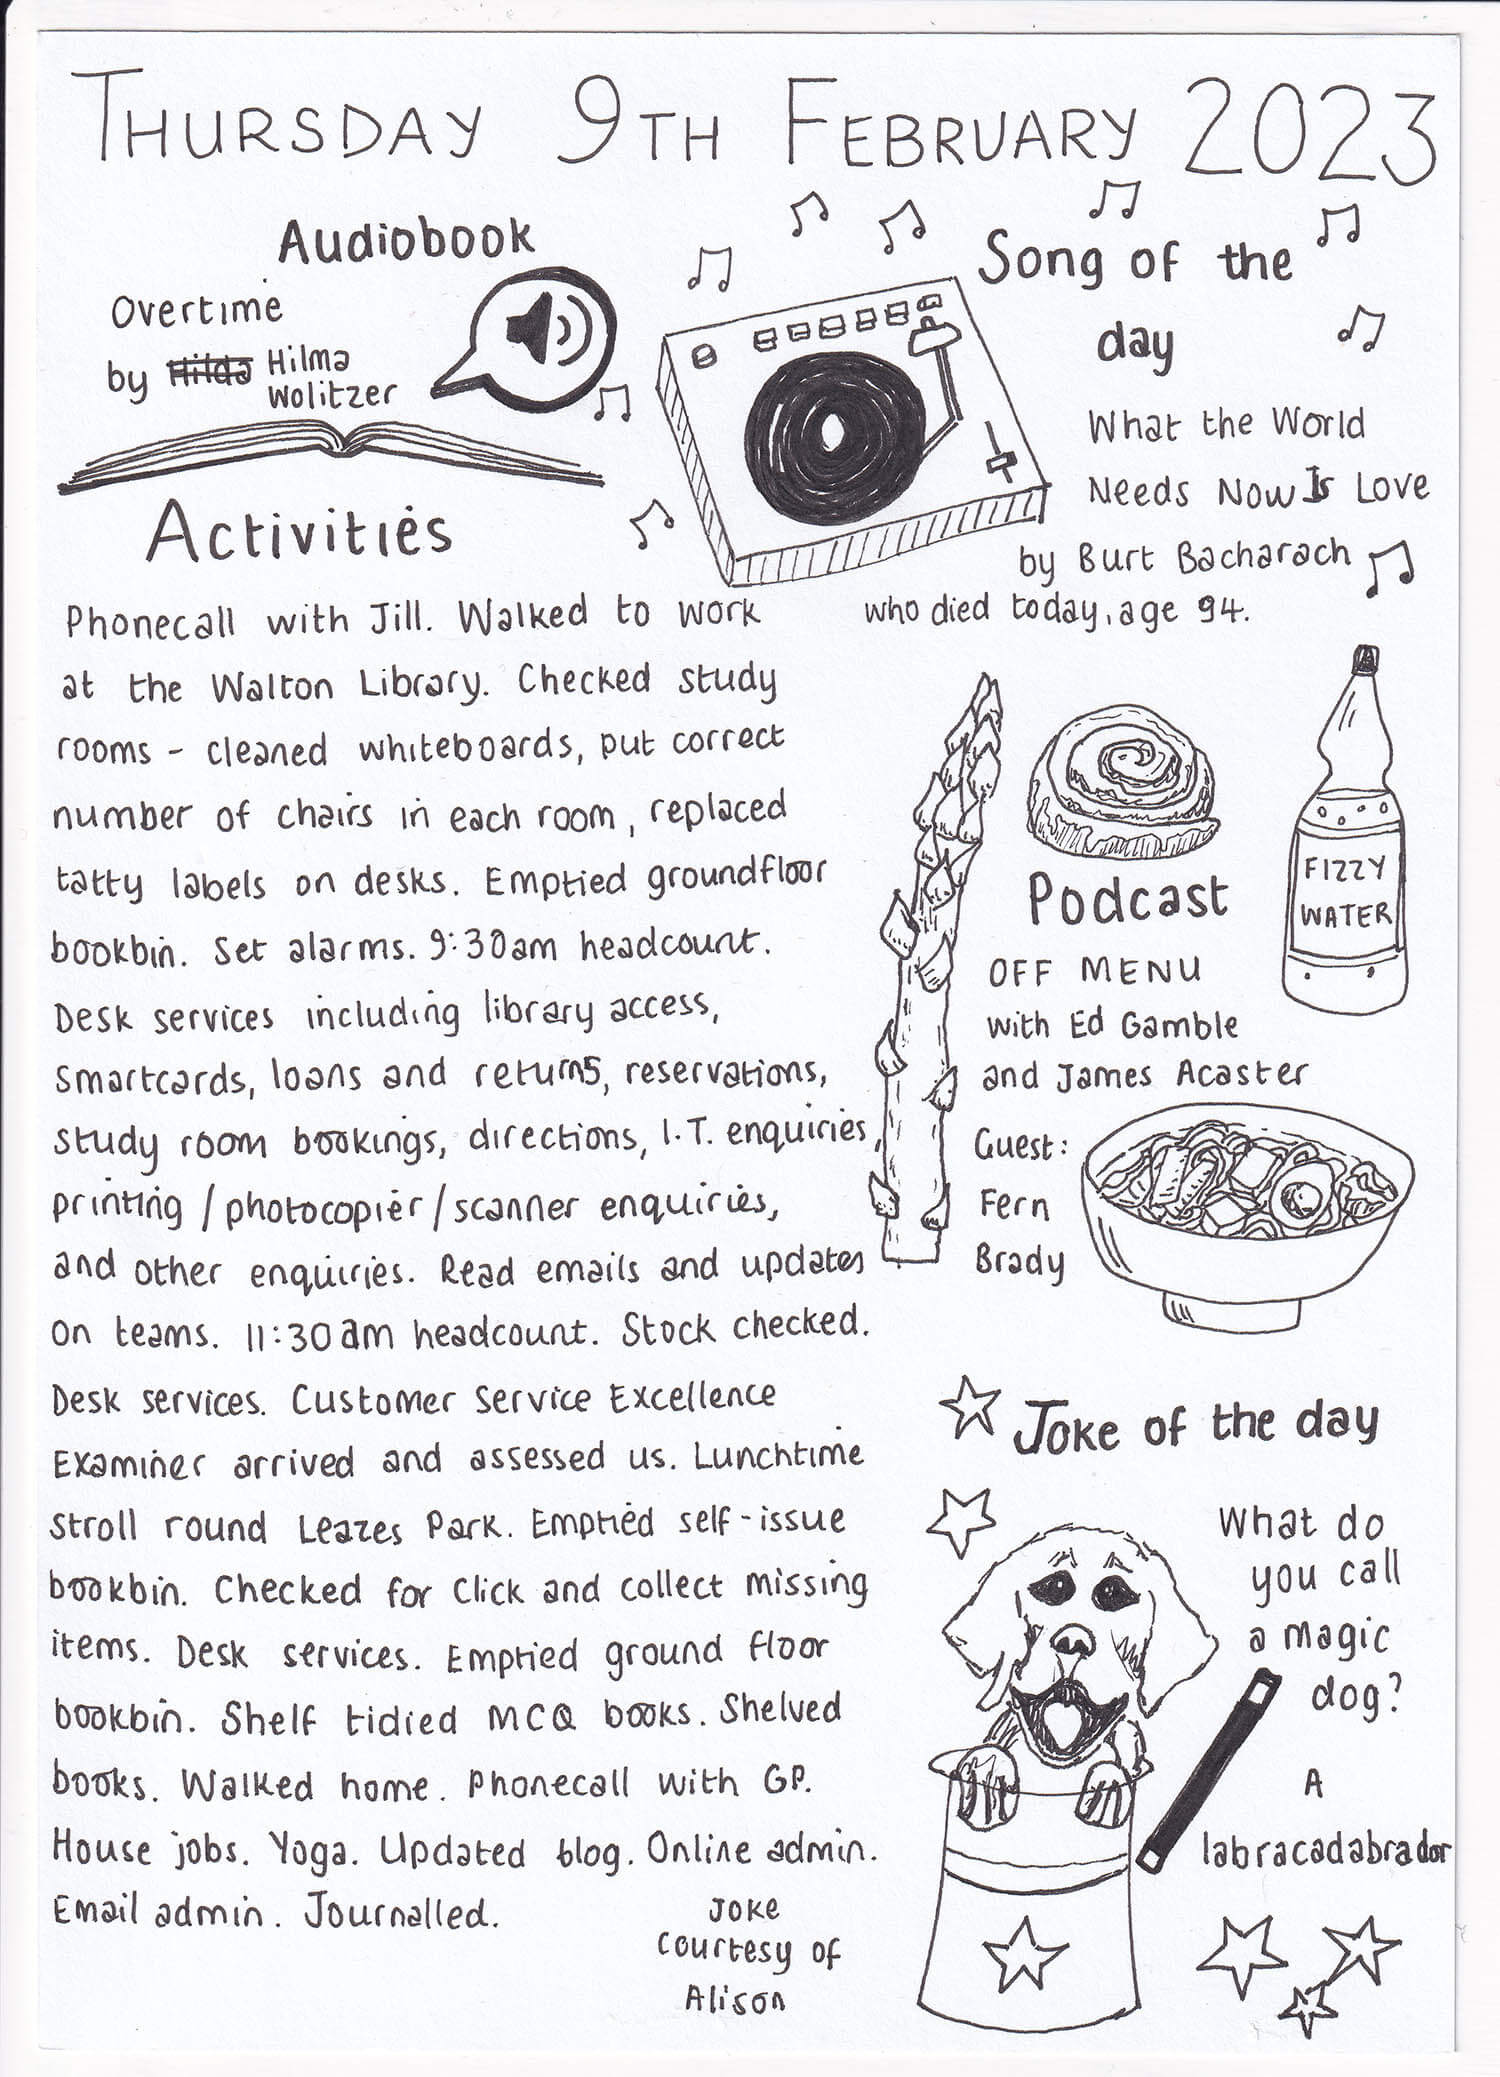 THURSDAY 9TH FEBRUARY 2023
Audiobook
Overtime
by Hilda Hilma
Wolitzer
Song of the
day
What the World
Needs Now Is Love
by Burt Bacharach
who died today, age 94.
Activities
Phonecall with Jill. Walked to work
at the Walton Library. Checked study
rooms - cleaned whiteboards, put correct
number of chairs in each room, replaced
tatty labels on desks. Emptied groundfloor
bookbin. Set alarms. 9:30am headcount.
Desk services including library access,
smartcards, loans and returns, reservations,
study room bookings, directions, I.T. enquiries,
printing / photocopier / scanner enquiries,
and other enquiries. Read emails and updates
on teams. 11:30am headcount. Stock checked.
Desk services. Customer Service Excellence
Examiner arrived and assessed us. Lunchtime
stroll round Leazes Park. Emptied self-issue
bookbin. Checked for click and collect missing
items. Desk services. Emptied ground floor
bookbin. Shelf tidied MCQ books. Shelved
books. Walked home. Phonecall with GP.
House jobs. Yoga. Updated blog. Online admin.
Email admin. Journalled.
FIZZY
WATER
Podcast
OFF MENU
with Ed Gamble
and James Acaster
Guest:
Fern
Brady
Joke of the day
What do
you call
a magic
dog?
A
labracadabrador
Joke
courtesy of
Alison